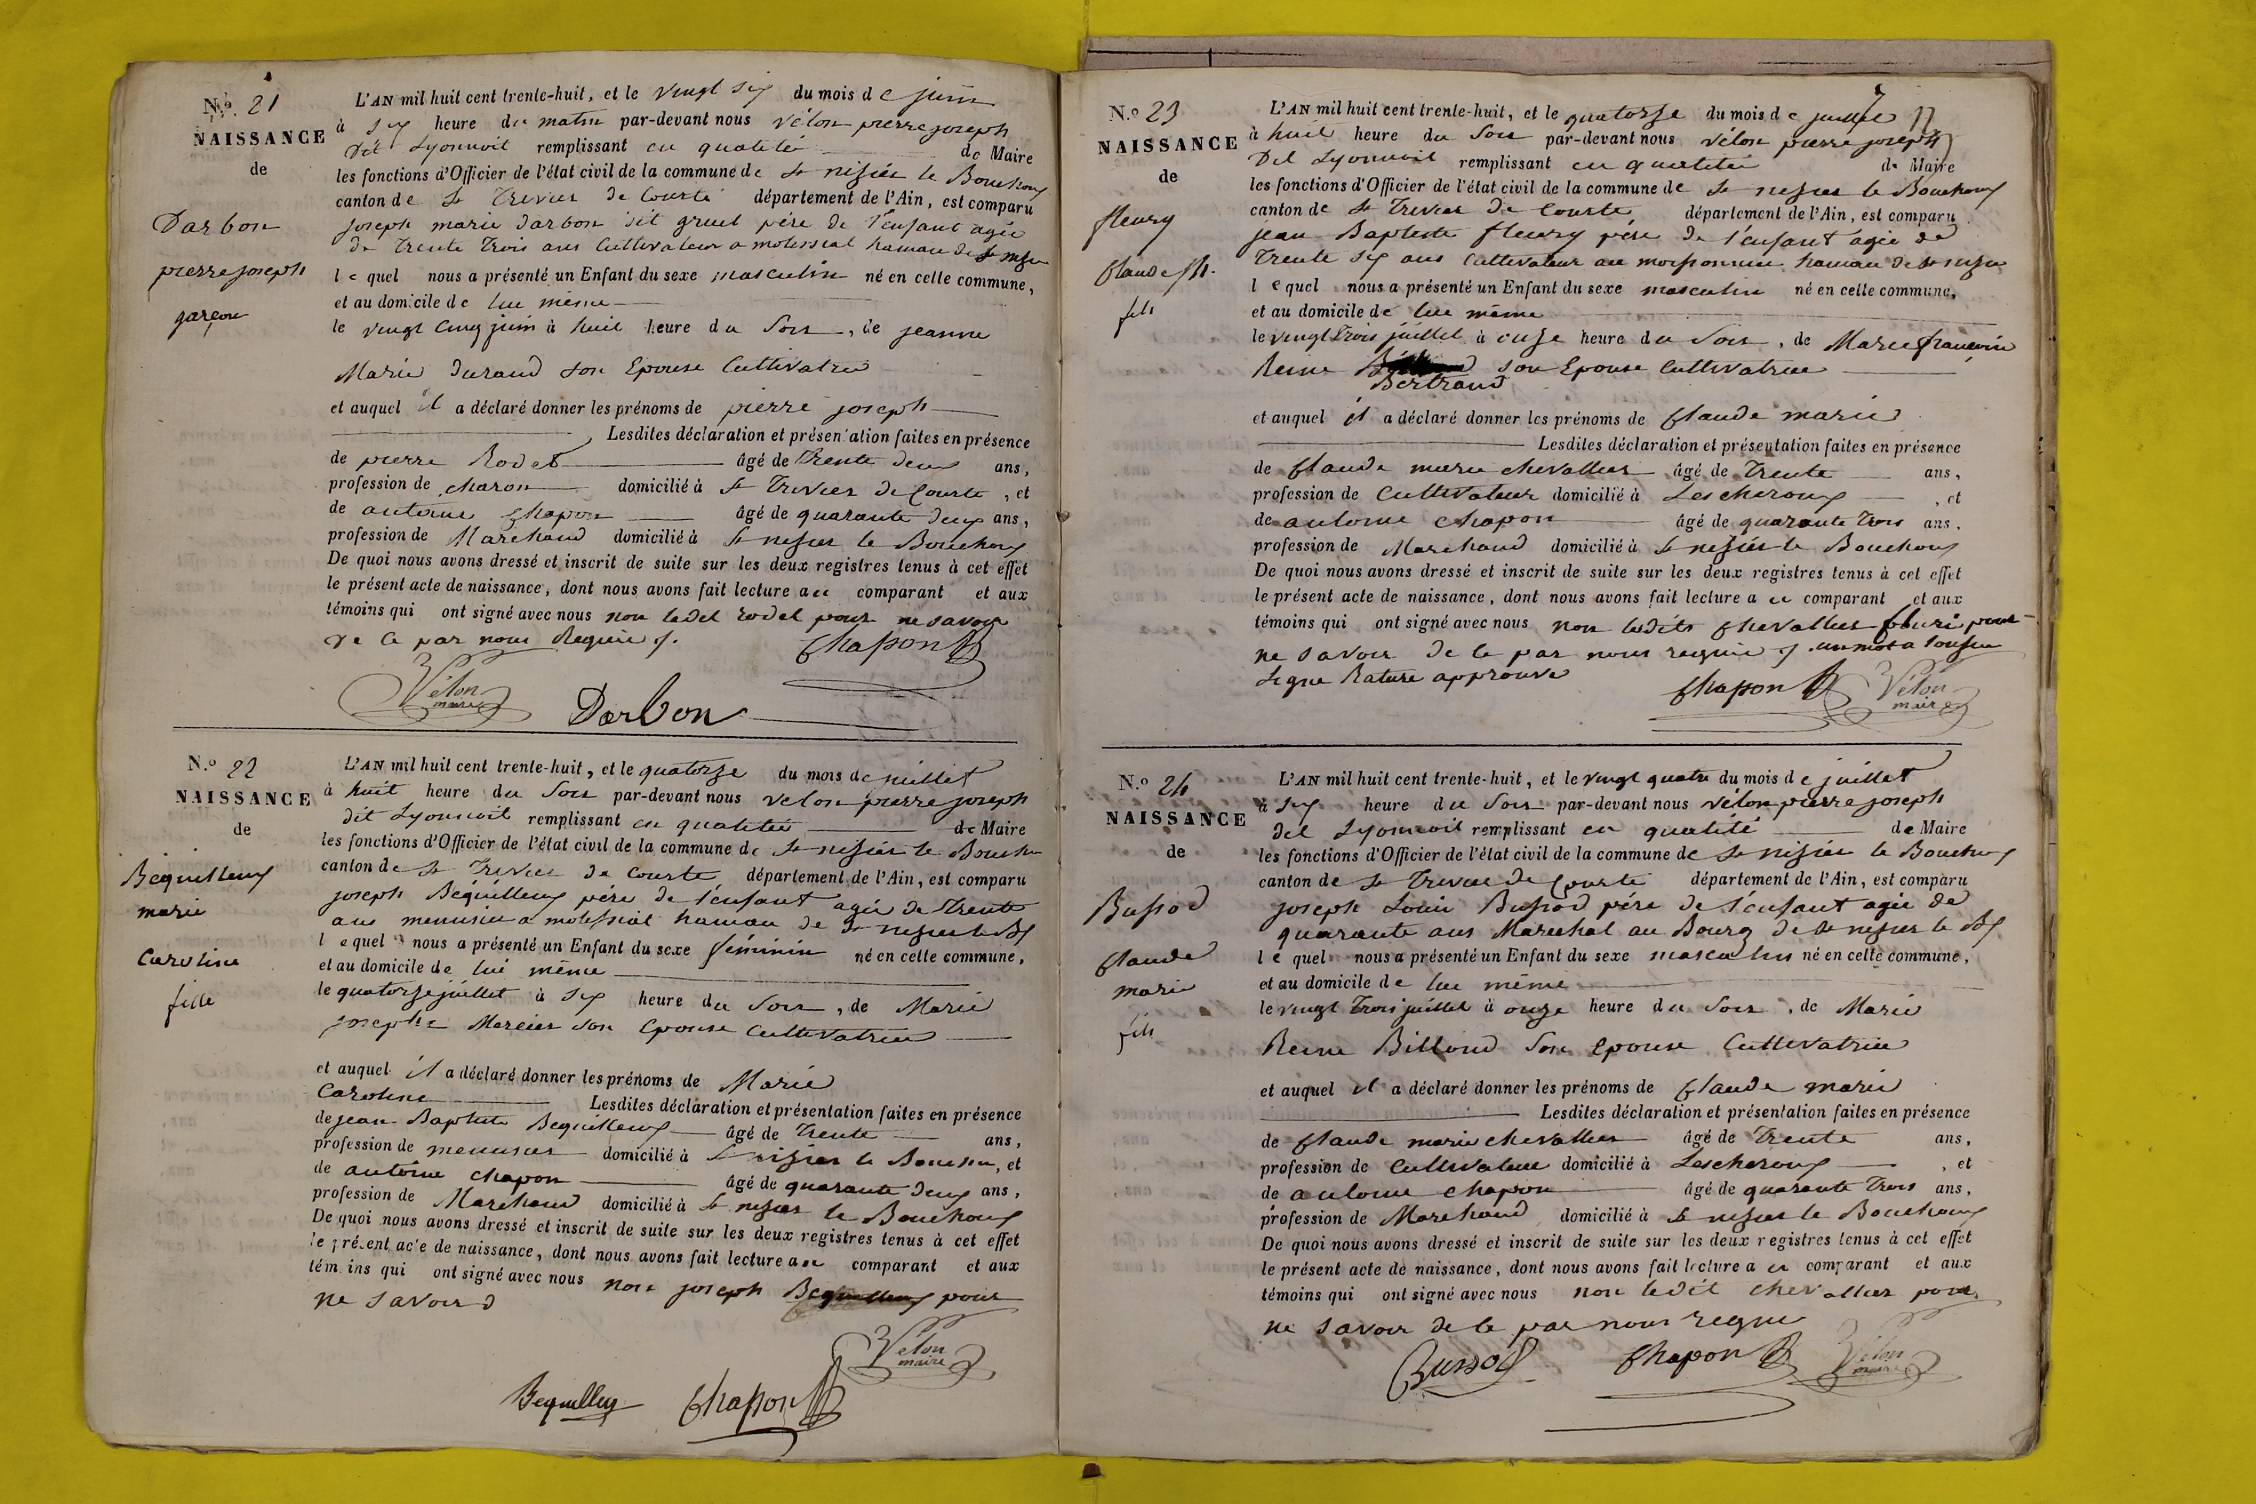 N.o 21
NAISSANCE
de
Darbon
pierre joseph
garçon
L'AN mil huit cent trente-huit, et le vingt six du mois de juin
à six heure du matin par-devant nous vélon pierre joseph
dit Lyonnoit remplissant en qualitée de Maire
les fonctions d'Officier de l'état civil de la commune de St nisier le Bouchoux
canton de St Trivier de Courte département de l'Ain, est comparu
joseph marie darbon dit gruel pére de l'enfant agée
de Trente Trois ans Cultivateur a molissiat hamau de St nisier
lequel nous a présenté un Enfant du sexe masculin né en cette commune,
et au domicile de lui même
le vingt cinq juin à huit heure du Soir, de jeanne
Marie durand son Epouse Cultivatrice
et auquel il a déclaré donner les prénoms de pierre joseph
Lesdites déclaration et présentation faites en présence
de pierre Rodet âgé de Trente deux ans,
profession de charon domicilié à St Trivier de Courte, et
de antoine Chapon âgé de quarante deux ans,
profession de Marchand domicilié à St nisier le Bouchoux
De quoi nous avons dressé et inscrit de suite sur les deux registres tenus à cet effet
le présent acte de naissance, dont nous avons fait lecture au comparant et aux
témoins qui ont signé avec nous non ledit rodet pour ne savoir
de ce par nous Requie /.
Chapon
Vélon
maire
Darbon
N.o 22
NAISSANCE
de
Bequilleux
marie
Caroline
fille
L'AN mil huit cent trente-huit, et le quatorze du mois de juillet
à huit heure du Soir par-devant nous velon pierre joseph
dit Lyonnoit remplissant en qualitée de Maire
les fonctions d'Officier de l'état civil de la commune de St nisier le Bouchou
canton de St Trivier de Courte département de l'Ain, est comparu
joseph Bequilleux pére de l'enfant agée de trente
ans menusier a molissiat hamau de St nisier le Bx
lequel nous a présenté un Enfant du sexe féminin né en cette commune,
et au domicile de lui même
le quatorze juillet à six heure du Soir, de Marie
josephe Mercier son Epouse Cultivatrice
et auquel il a déclaré donner les prénoms de Marie
Caroline Lesdites déclaration et présentation faites en présence
de jean Baptiste Bequilleux âgé de Trente ans,
profession de menusier domicilié à St nisier le Bouchou, et
de antoine chapon âgé de quarante deux ans,
profession de Marchand domicilié à St nisier le Bouchoux
De quoi nous avons dressé et inscrit de suite sur les deux registres tenus à cet effet
le présent acte de naissance, dont nous avons fait lecture au comparant et aux
témoins qui ont signé avec nous non joseph Bequilleux pour
ne savoir
Vélon
maire
Bequilleux Chapon
N.o 23
NAISSANCE
de
fleury
Claude M.
fils
L'AN mil huit cent trente-huit, et le quatorze du mois de juillet
à huit heure du Soir par-devant nous vélon pierre joseph
Dit Lyonnoit remplissant en qualitée de Maire
les fonctions d'Officier de l'état civil de la commune de St nisier le Bouchoux
canton de St Trivier de Courte département de l'Ain, est comparu
jean Baptiste fleury pére de l'enfant agée de
Trente six ans Cultivateur au moissonnier hamau de St nisier
lequel nous a présenté un Enfant du sexe masculin né en cette commune,
et au domicile de lui même
le vingt Trois juillet à onze heure du Soir, de Marie françoise
Reine Bertrand son Epouse Cultivatrice
et auquel il a déclaré donner les prénoms de Claude marie
Lesdites déclaration et présentation faites en présence
de Claude marie chevallier âgé de Trente ans,
profession de Cultivateur domicilié à Lescheroux, et
de antoine chapon âgé de quarante Trois ans,
profession de Marchand domicilié à St nisier le Bouchoux
De quoi nous avons dressé et inscrit de suite sur les deux registres tenus à cet effet
le présent acte de naissance, dont nous avons fait lecture au comparant et aux
témoins qui ont signé avec nous non lesdits chevallier fleuri pour
ne savoir de ce par nous requie /. un mot a
Ligne Rature approuvé
Chapon
Vélon
maire
N.o 24
NAISSANCE
de
Bussod
Claude
marie
fils
L'AN mil huit cent trente-huit, et le vingt quatre du mois de juillet
à six heure du Soir par-devant nous vélon pierre joseph
dit Lyonnoit remplissant en qualité de Maire
les fonctions d'Officier de l'état civil de la commune de St nisier le Bouchoux
canton de St Trivier de Courte département de l'Ain, est comparu
joseph Louis Bussod pére de l'enfant agée de
quarante ans Marechal au Bourg de St nisier le Bx
lequel nous a présenté un Enfant du sexe masculin né en cette commune,
et au domicile de lui même
le vingt Trois juillet à onze heure du Soir, de Marie
Reine Billoud Son epouse Cultivatrice
et auquel il a déclaré donner les prénoms de Claude marie
Lesdites déclaration et présentation faites en présence
de Claude marie chevallier âgé de Trente ans,
profession de Cultivateur domicilié à Lescheroux, et
de antoine chapon âgé de quarante Trois ans,
profession de Marchand domicilié à St nisier le Bouchoux
De quoi nous avons dressé et inscrit de suite sur les deux registres tenus à cet effet
le présent acte de naissance, dont nous avons fait lecture au comparant et aux
témoins qui ont signé avec nous non ledit chevallier pour
ne savoir de ce par nous requi
Bussod Chapon Vélon
maire